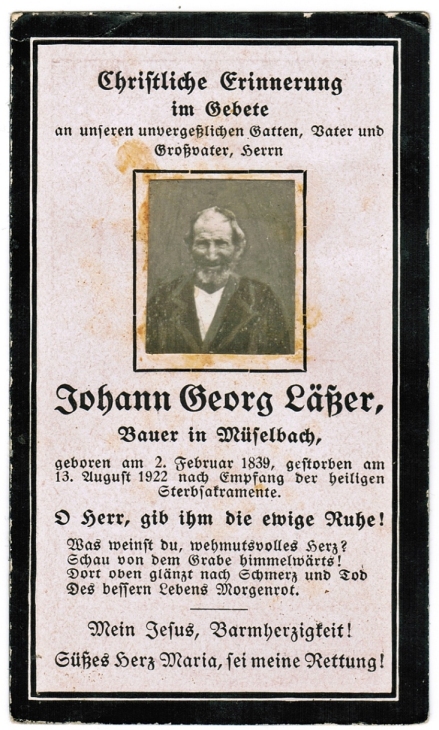 Christliche Erinnerung
im Gebete
an unseren unvergeßlichen Gatten, Vater und
Großvater, Herrn
Johann Georg Läßer,
Bauer in Müselbach,
geboren am 2. Februar 1839, gestorben am
13. August 1922 nach Empfang der heiligen
Sterbsakramente.
O Herr, gib ihm die ewige Ruhe!
Was weinst du, wehmutsvolles Herz?
Schau von dem Grabe himmelwärts!
Dort oben glänzt nach Schmerz und Tod
Des bessern Lebens Morgenrot.
Mein Jesus, Barmherzigkeit!
Süßes Herz Maria, sei meine Rettung!